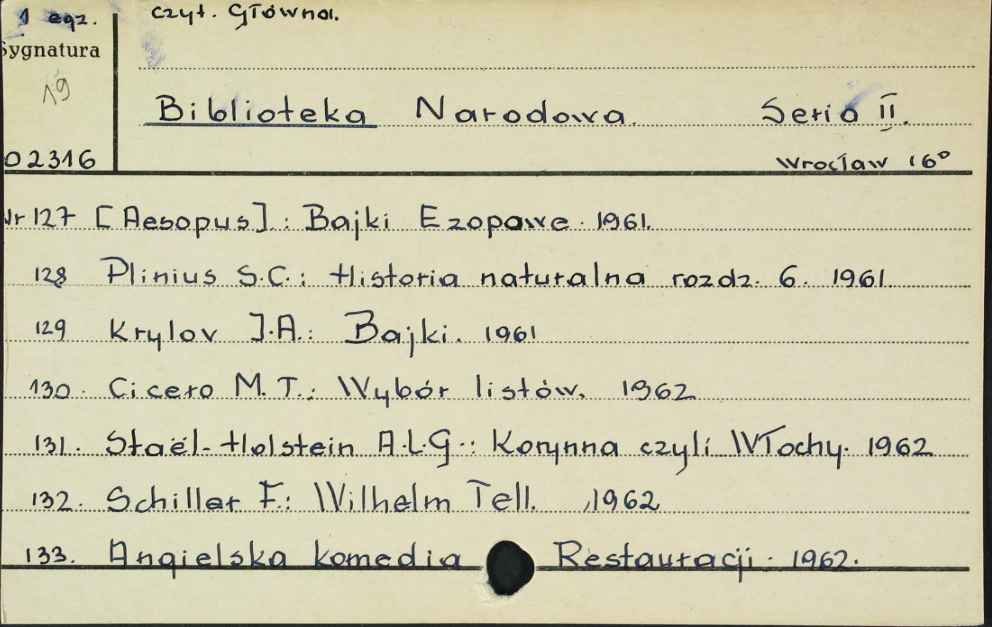 1 egz. czyt. Główna.
Sygnatura
19
Biblioteka Narodowa. Seria II.
02316 Wrocław 16°
Nr 127 [Aesopus].: Bajki Ezopowe. 1961.
128 Plinius S.C.: Historia naturalna rozdz. 6. 1961.
129 Krylov I.A.: Bajki. 1961
130. Cicero M.T.: Wybór listów. 1962
131. Staël-Holstein A.L.G.: Korynna czyli Włochy. 1962
132. Schiller F.: Wilhelm Tell. 1962
133. Angielska komedia Restauracji. 1962.